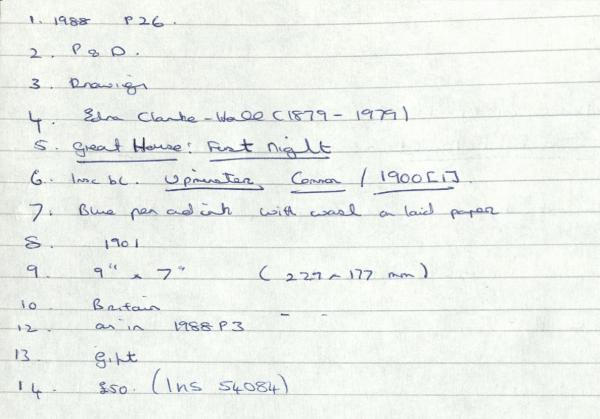 1. 1988 P26.
2. P & D.
3. Drawings
4. Edna Clarke-Hall (1879-1979)
5. Great House: First Night
6. Insc bc. Upminster, Common / 1900[1].
7. Blue pen and ink with wash on laid paper
8. 1901
9. 9" x 7" (227 x 177 mm)
10 Britain
12. as in 1988 P3
13. gift
14. £50. (Ins 54084)